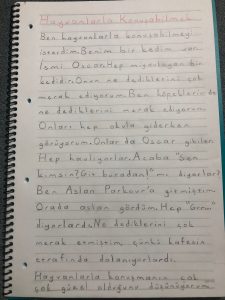 Hayvanlarla Konuşabilmek
Ben hayvanlarla konuşabilmeyi
isterdim. Benim bir kedim var.
İsmi Oscar. Hep miyavlayan bir
kedidir. Onun ne dediklerini çok
merak ediyorum. Ben köpeklerinde
ne dediklerini merak ediyorum.
Onları hep okula giderken
görüyorum. Onlar da Oscar gibiler.
Hep havlıyorlar. Acaba "Sen
kimsin? Git buradan!" mı diyorlar?
Ben Aslan Parkour'a gitmiştim
Orada aslan gördüm. Hep "Grrr"
diyorlardı. Ne dediklerini çok
merak etmiştim, çünkü kafesin
etrafında dolanıyorlardı.
Hayvanlarla konuşmanın çok
çok güzel olduğunu düşünüyorum.